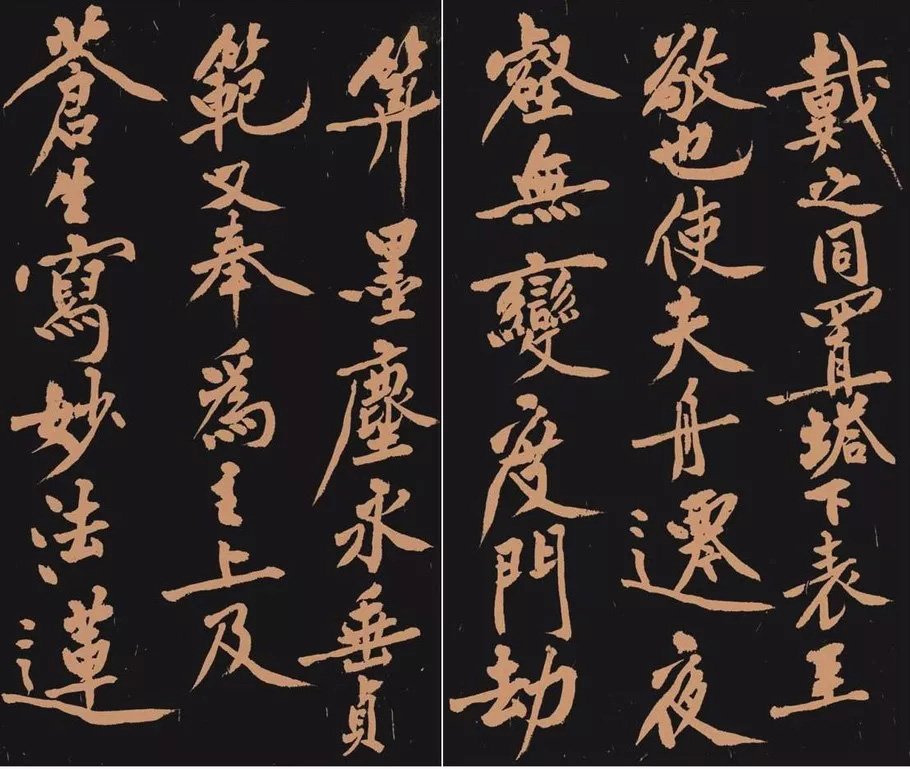 戴之同置塔下表至
敬也使夫舟遷夜
壑無變度門劫
筭墨塵永垂貞
範又奉爲主上及
蒼生寫妙法蓮